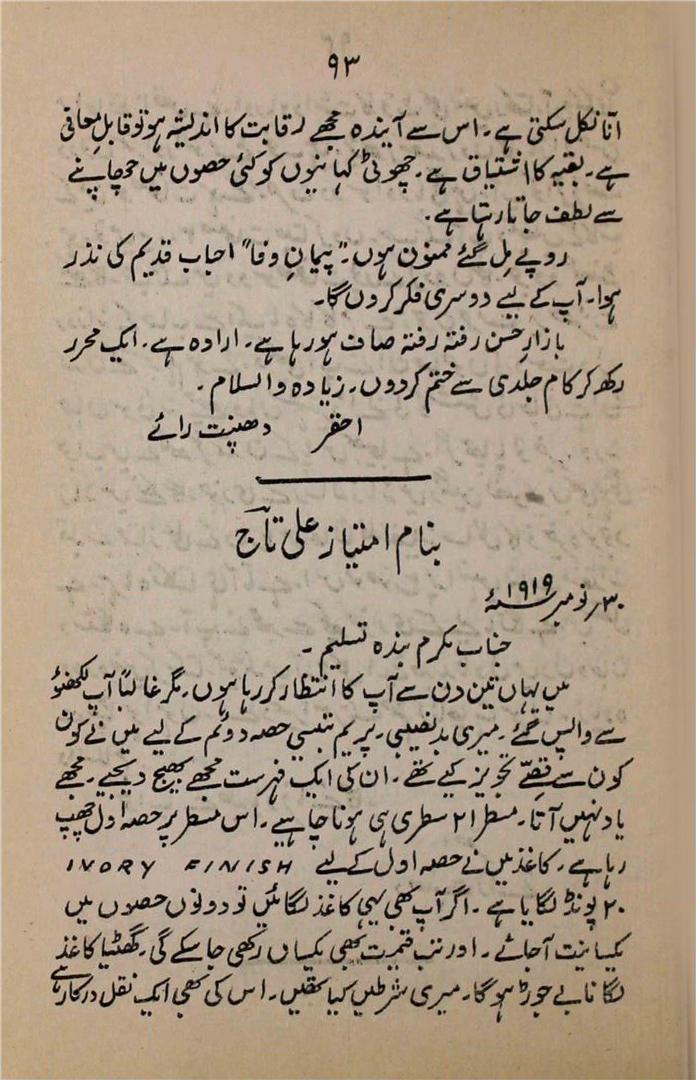 ۹۳
آنا نکل سکتی ہے۔ اس سے آیندہ مجھے رقابت کا اندیشہ ہو تو قابلِ معافی
ہے۔ بقیہ کا اشتیاق ہے۔ چھوٹی کہانیوں کو کئی حصوں میں چھاپنے
سے لطف جاتا رہتا ہے۔
روپے مِل گئے ممنون ہوں۔ "پیمانِ وفا" احباب قدیم کی نذر
ہوا۔ آپ کے لیے دوسری فکر کروں گا۔
بازارِ حسن رفتہ رفتہ صاف ہو رہا ہے۔ ارادہ ہے۔ ایک محرر
رکھ کر کام جلدی سے ختم کردوں۔ زیادہ والسلام۔
احقر دھنپت رائے
بنام امتیاز علی تاج
۳۰ر نومبر ۱۹۱۹ء
جناب مکرم بندہ تسلیم۔
میں یہاں تین دن سے آپ کا انتظار کر رہا ہوں۔ مگر غالباً آپ لکھنؤ
سے واپس گئے۔ میری بدنصیبی۔ پریم بتیسی حصہ دوئم کے لیے میں نے کون
کون سے قصے تجویز کیے تھے۔ ان کی ایک فہرست مجھے بھیج دیجیے۔ مجھے
یاد نہیں آتا۔ مسطر ۲۱ سطری ہی ہونا چاہیے۔ اس مسطر پر حصہ اول چھپ
رہا ہے۔ کاغذ میں نے حصہ اول کے لیے IVORY FINISH
۲۰ پونڈ لگایا ہے۔ اگر آپ بھی یہی کاغذ لگائیں تو دونوں حصوں میں
یکسانیت آجائے۔ اور تب قیمت بھی یکساں رکھی جا سکے گی۔ گھٹیا کاغذ
لگانا بے جوڑ ہوگا۔ میری شرطیں کیا تھیں۔ اس کی بھی ایک نقل درکار ہے